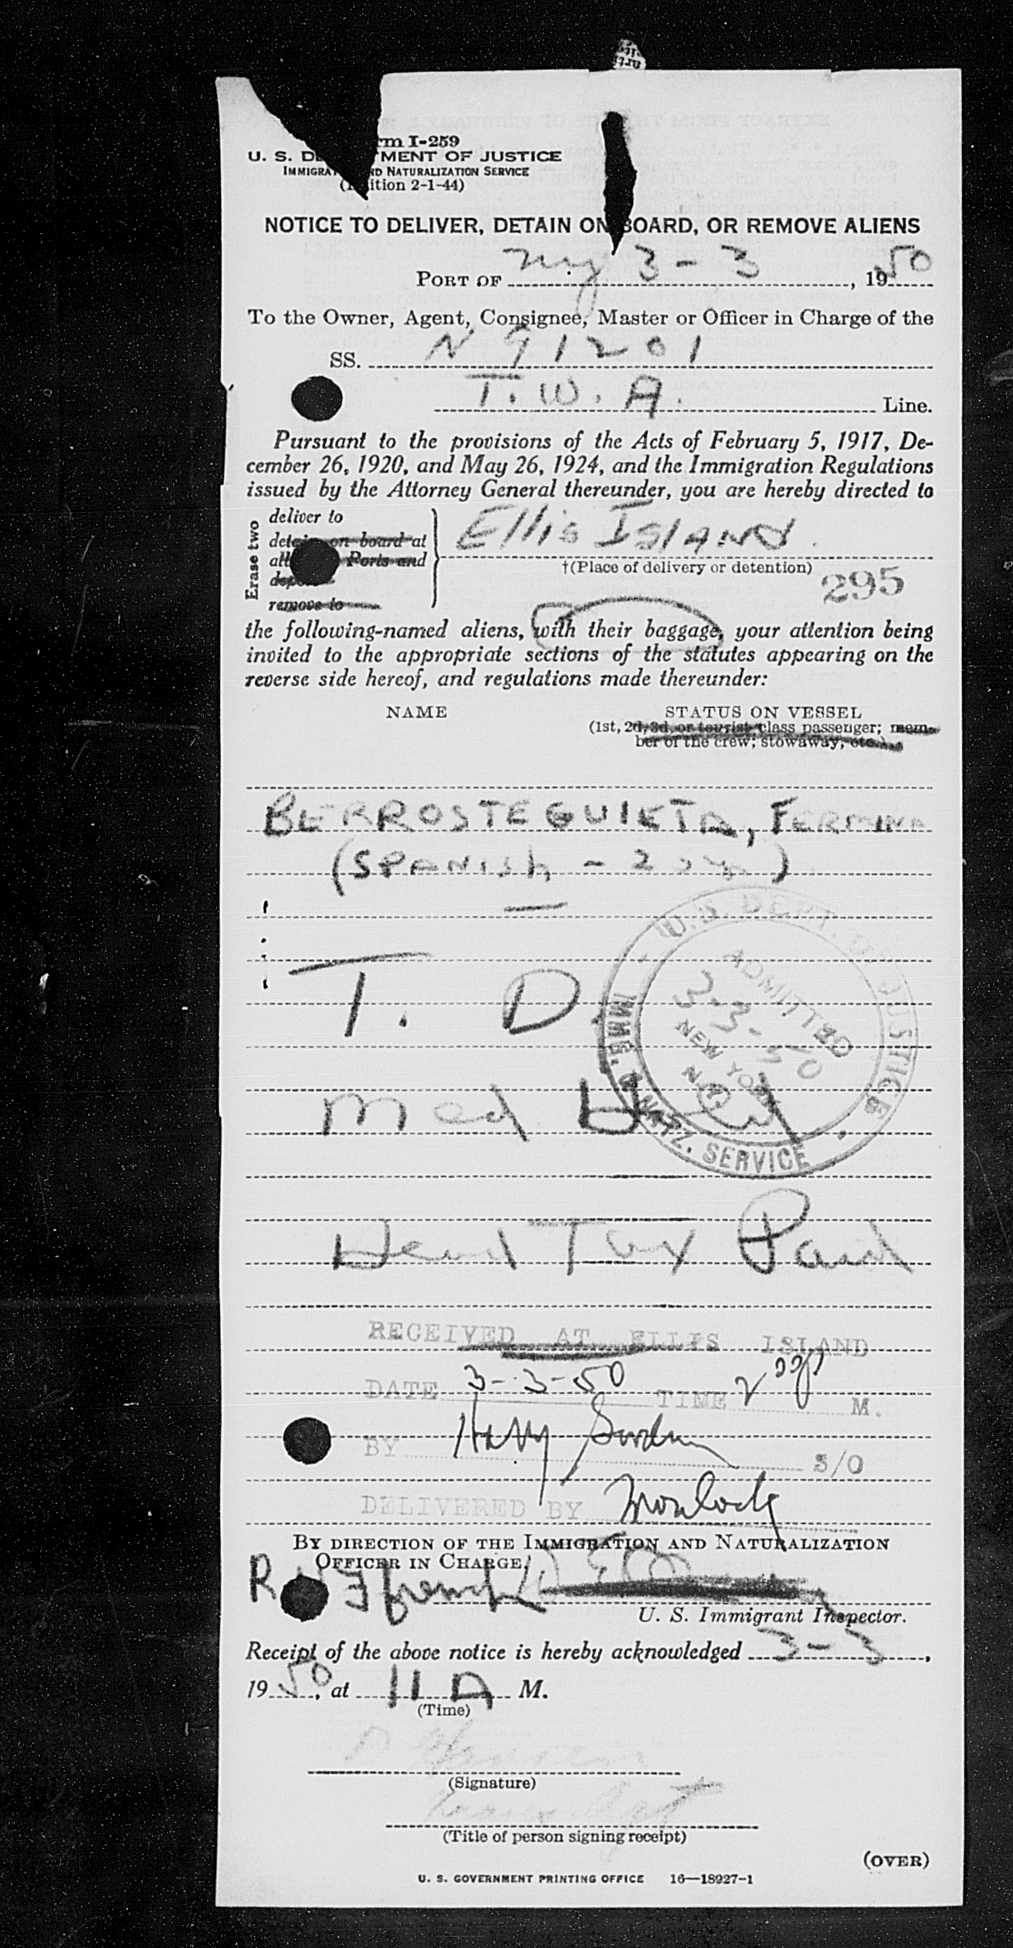 rm I-259
U. S. D MENT OF JUSTICE
IMMIGRAT ND NATURALIZATION SERVICE
( ition 2-1-44)
NOTICE TO DELIVER, DETAIN ON BOARD, OR REMOVE ALIENS
PORT OF NY 3-3, 1950
To the Owner, Agent, Consignee, Master or Officer in Charge of the
SS. N 91201
T. W. A. Line.
Pursuant to the provisions of the Acts of February 5, 1917, De-
cember 26, 1920, and May 26, 1924, and the Immigration Regulations
issued by the Attorney General thereunder, you are hereby directed to
Erase two
deliver to
detain on board at
all Ports and
depor
remove to
Ellis Island.
†(Place of delivery or detention)
295
the following-named aliens, with their baggage, your attention being
invited to the appropriate sections of the statutes appearing on the
reverse side hereof, and regulations made thereunder:
NAME STATUS ON VESSEL
(1st, 2d, 3d, or tourist class passenger; mem-
ber of the crew; stowaway, etc.)
BERROSTEGUIETA, FERMINA
(SPANISH - 20 )
T. D.
U.S. DEPT. OF JUSTICE
IMMG. & NATZ. SERVICE
ADMITTED
3-3-50
NEW YORK
N.Y.
Med
Head Tax Paid
RECEIVED AT ELLIS ISLAND
DATE 3-3-50 TIME 2 P M.
BY Harry Gordon S/O
DELIVERED BY
BY DIRECTION OF THE IMMIGRATION AND NATURALIZATION
OFFICER IN CHARGE,
U. S. Immigrant Inspector.
Receipt of the above notice is hereby acknowledged 3-3,
1950, at 11 A M.
(Time)
(Signature)
(Title of person signing receipt)
(OVER)
U. S. GOVERNMENT PRINTING OFFICE 16—18927-1